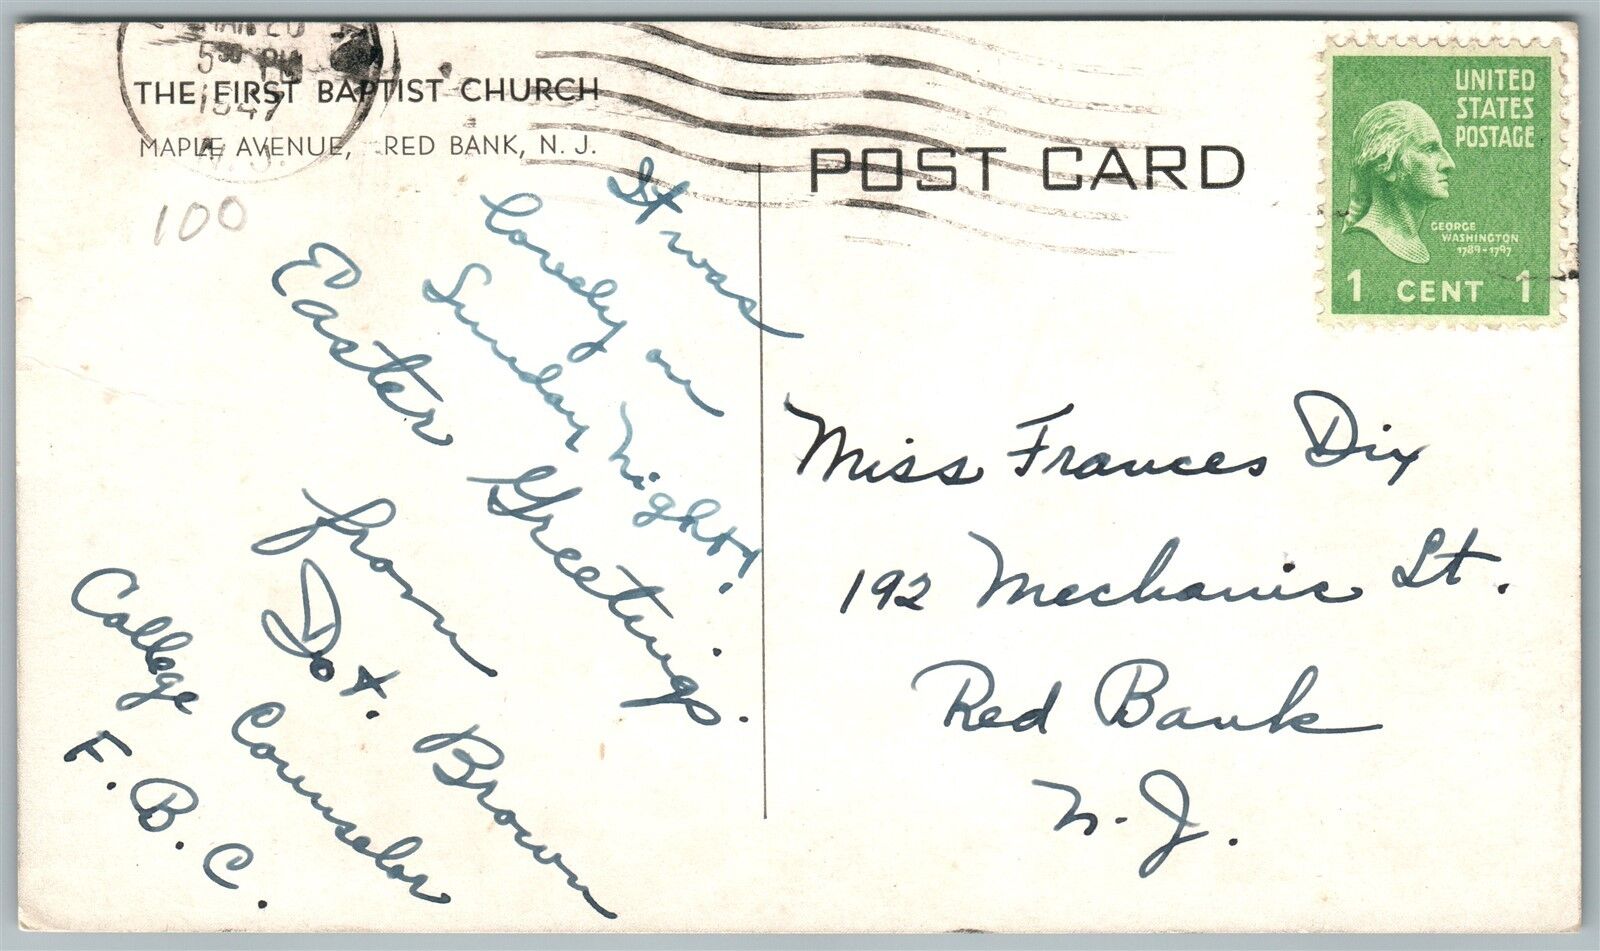 MAR 20
5 30 PM
1947
N.J.
THE FIRST BAPTIST CHURCH
MAPLE AVENUE, RED BANK, N. J.
100
It was
lovely on
Sunday night!
Easter Greetings.
from
Dot. Brown
College Counselor
F. B. C.
POST CARD
UNITED
STATES
POSTAGE
GEORGE
WASHINGTON
1789-1797
1 CENT 1
Miss Frances Dix
192 Mechanic St.
Red Bank
N. J.